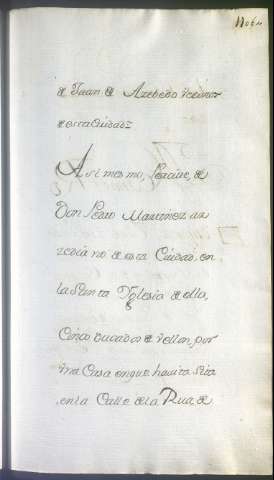 de Juan de Azebedo vecino
de esta Ciudad=
Asimesmo, se
Don Pedro Martinez
zediano de esta Ciudad, en
la Santa Yglesia de ella,
Cinco ducados de vellon, por
vna Casa en que havita sita
en la Calle de la Rua, de